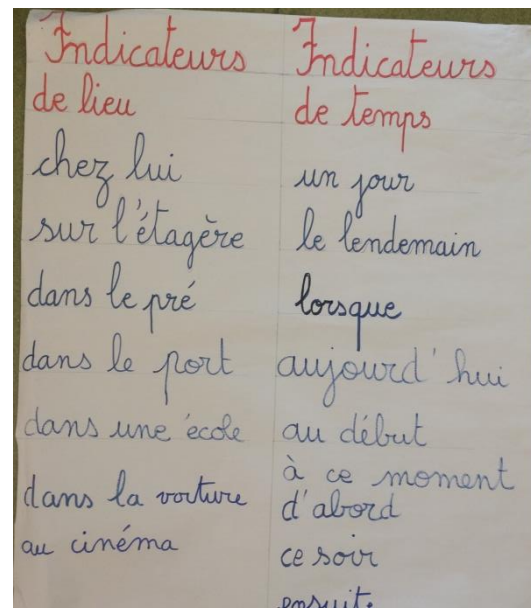 Indicateurs
de lieu
chez lui
sur l'étagère
dans le pré
dans le port
dans une école
dans la voiture
au cinéma
Indicateurs
de temps
un jour
le lendemain
lorsque
aujourd'hui
au début
à ce moment
d'abord
ce soir
ensuite